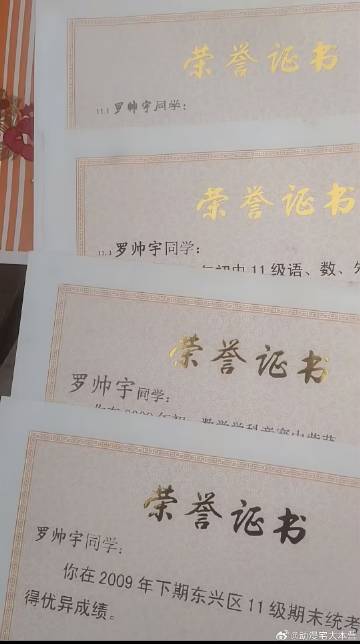 荣誉证书
11.3 罗帅宇同学：
荣誉证书
11.3 罗帅宇同学：
年初中11级语、数、外
荣誉证书
罗帅宇同学：
荣誉证书
罗帅宇同学：
你在2009年下期东兴区11级期末统考
得优异成绩。
@动漫宅大本营